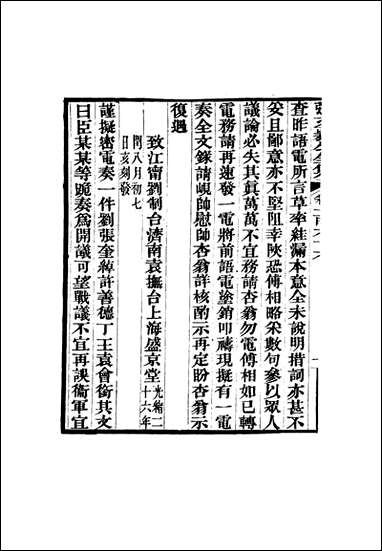 張文襄公全集
卷一百六十六
一
查昨語電所言草率絓漏本意全未說明措詞亦甚不
妥且鄙意亦不堅阻幸陝恐傅相略采數句參以眾人
議論必失其真萬萬不宜務請杏翁勿電傅相如已轉
電務請再速發一電將前語電塗銷叩禱現擬有一電
奏全文錄請峴帥慰帥杏翁詳核酌示再定盼杏翁示
復遇
致江甯劉制台濟南袁撫台上海盛京堂光緒二十六年
閏八月初七
日亥刻發
謹擬密電奏一件劉張奎綽許善德丁王袁會銜其文
曰臣某某等跪奏為開議可望戰議不宜再誤衞軍宜